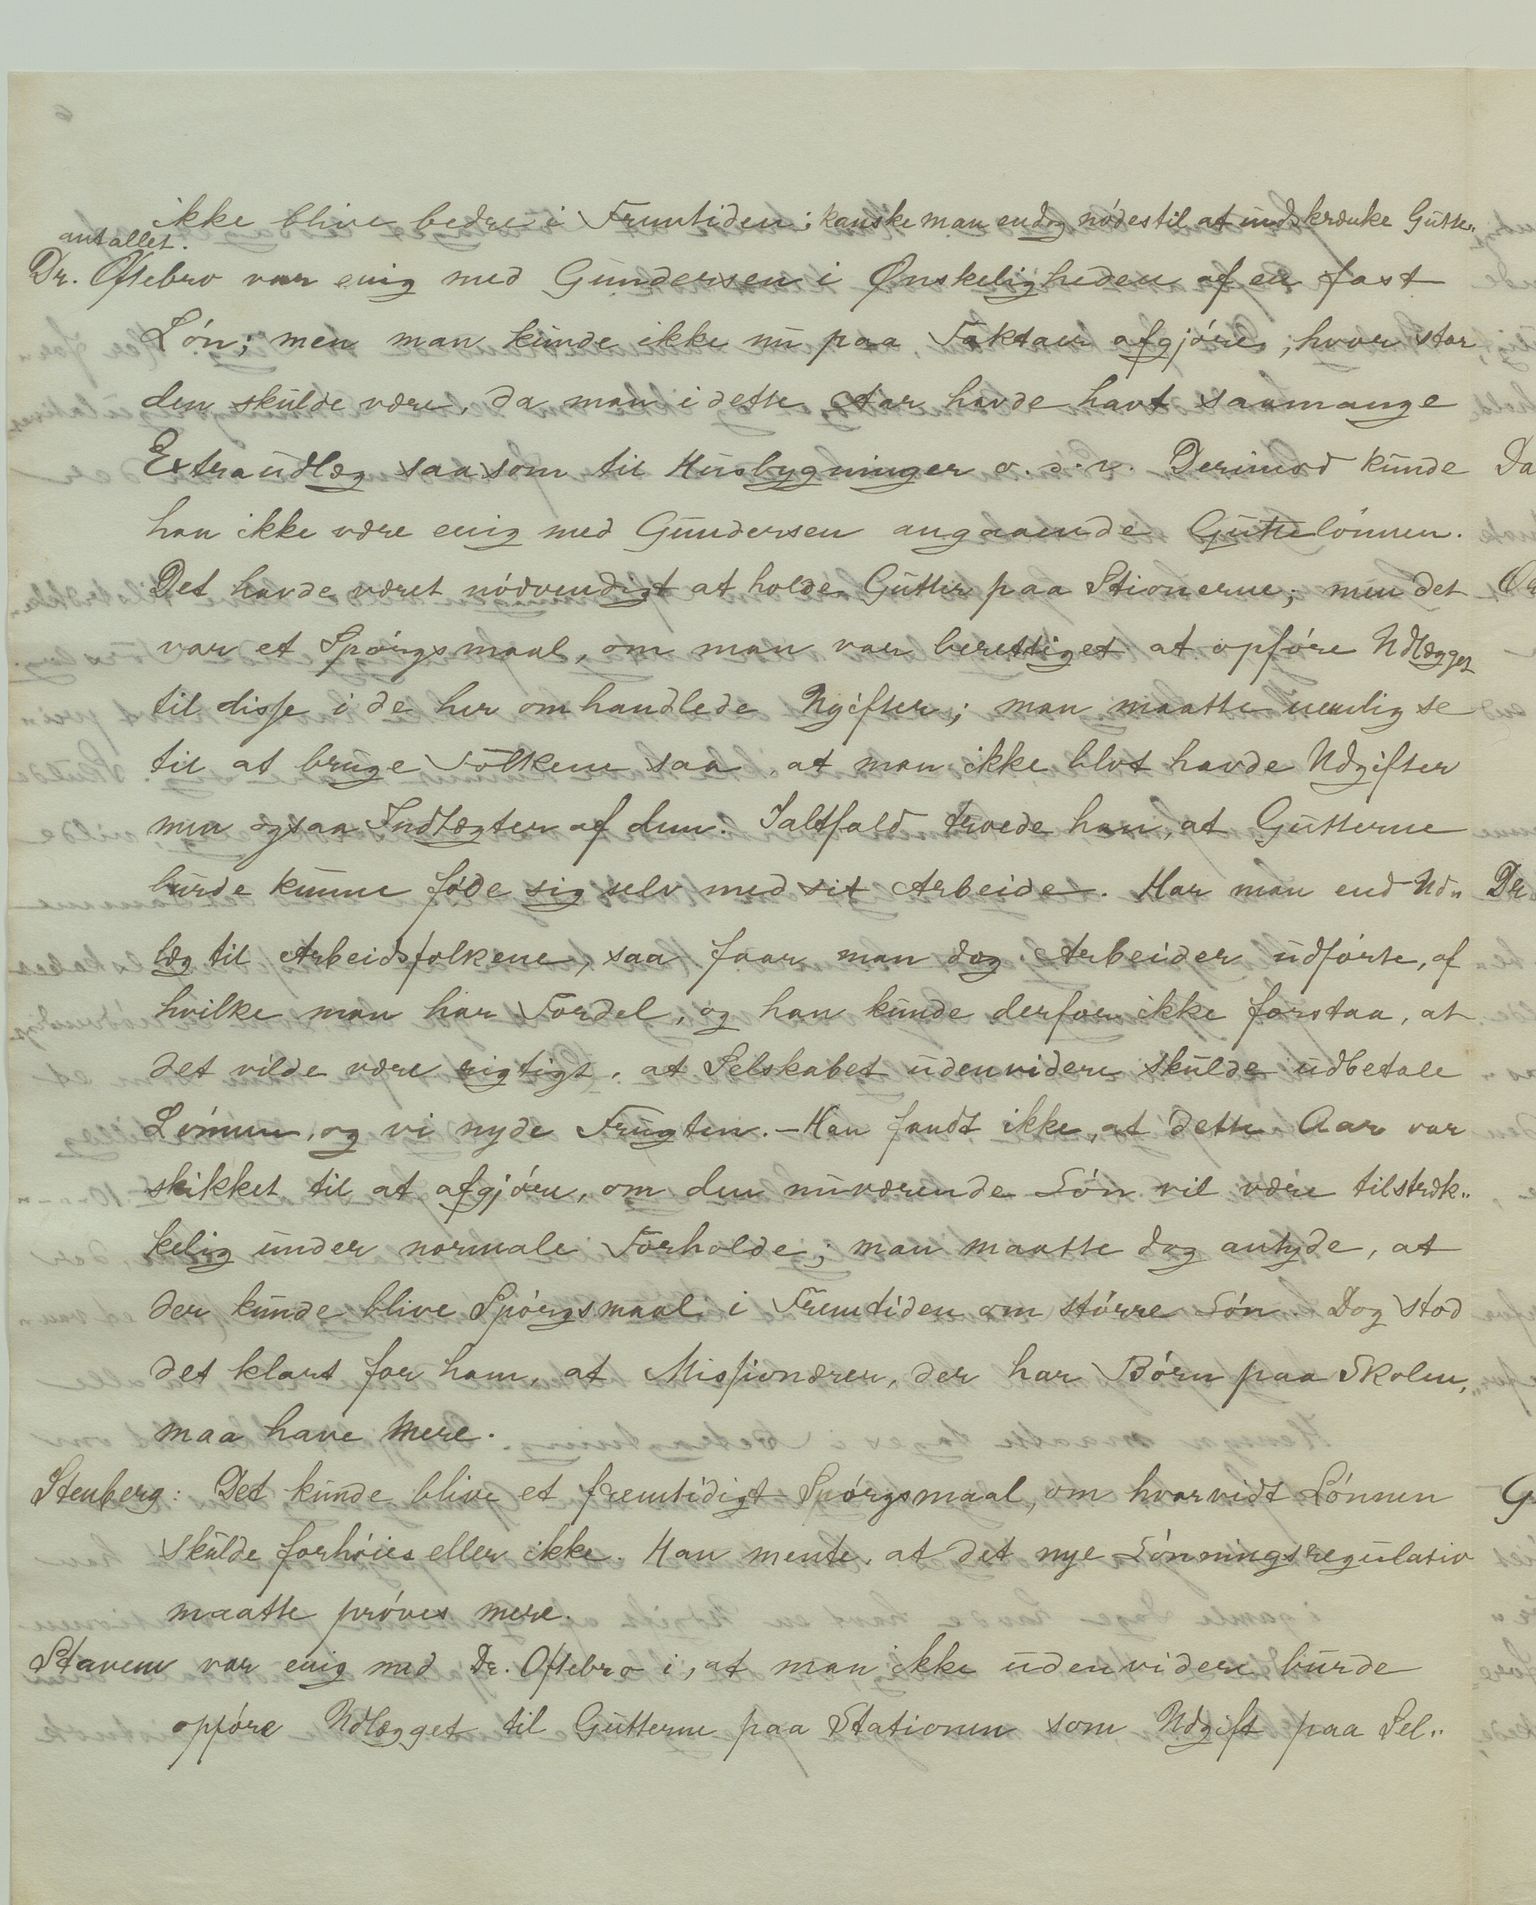 ikke blive bedre i Fremtiden; kanske man endog nödes til at indskrænke Gutte„
antallet.
Dr. Oftebro var enig med Gundersen i Ønskeligheden af en fast
Lón; men man kunde ikke nu paa Faktaer afgjóre, hvor stor
den skulde være, da man i dette Aar havde havt saamange
Extraudlæg saasom til Husbygninger o. s. v. Derimod kunde
han ikke være enig med Gundersen angaaende Guttelónnen.
Det havde været nódvendigt at holde Gutter paa Stionerne; men det
var et Spórgsmaal, om man var berettiget at opfóre Udlægget
til disse i de her omhandlede Ugifter; man maatte nemlig se
til at bruge Folkene saa, at man ikke blot havde Udgifter
men ogsaa Indtægter af dem. Ialtfald troede han, at Gutterne
burde kunne føde sig selv med sit Arbeide. Har man end Ud„
læg til Arbeidsfolkene, saa faar man dog Arbeider udfórte, af
hvilke man har Fordel, og han kunde derfor ikke forstaa, at
det vilde være rigtigt, at Selskabet udenvidere skulde udbetale
Lónnen, og vi nyde Frugten. — Han fandt ikke, at dette Aar var
skikket til at afgjóre, om den nuværende Lón vil være tilstræk„
kelig under normale Forholde; man maatte dog antyde, at
der kunde blive Spórgsmaal i Fremtiden om stórre Lón. Dog stod
det klart for ham, at Missionærer, der har Bórn paa Skolen,
maa have mere.
Stenberg: Det kunde blive et fremtidigt Spórgsmaal, om hvorvidt Lónnen
skulde forhóies eller ikke. Han mente, at det nye Lónningsregulativ
maatte próves mere.
Stavem var enig med Dr. Oftebro i, at man ikke udenvidere burde
opfóre Udlægget til Gutterne paa Stationen som Udgift paa Sel„
Da
Dr
G